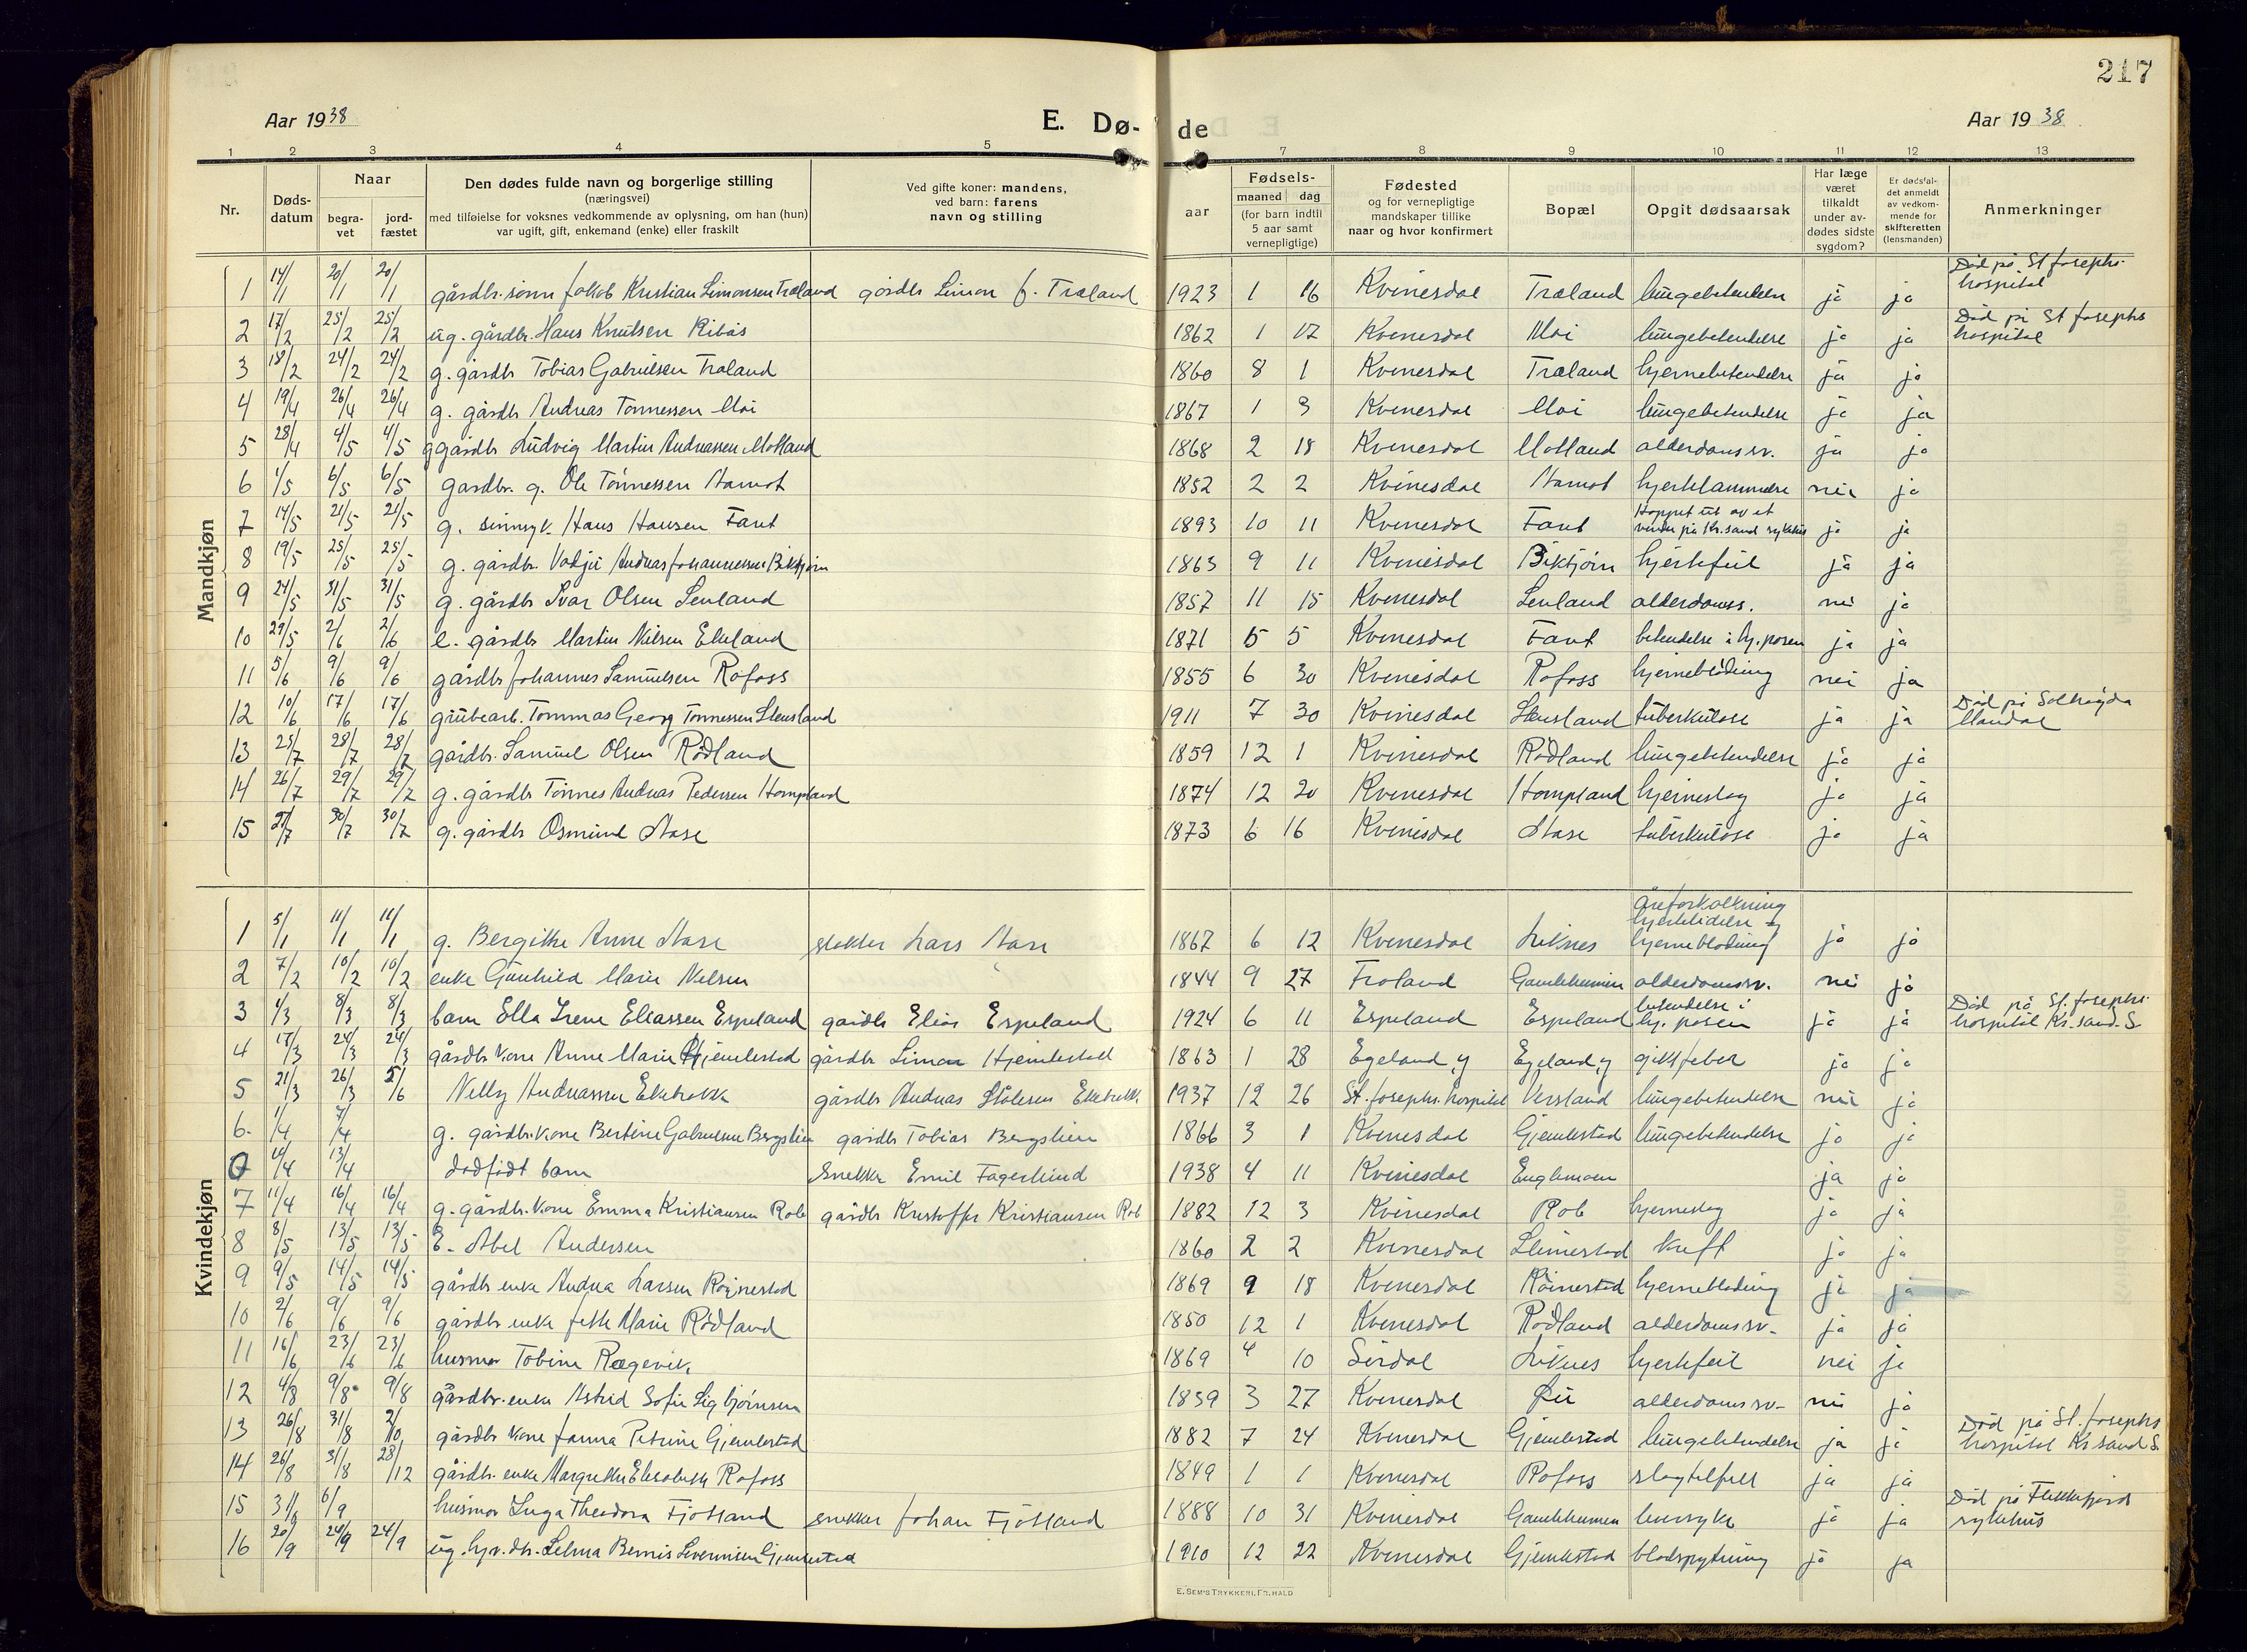 217
Aar 1938
E. Dø-
de
Aar 1938
1 2 3 4 5 6 7 8 9 10 11 12 13
Nr.
Døds-
datum
Naar
begra-
vet
jord-
fæstet
Den dødes fulde navn og borgerlige stilling
(næringsvei)
med tilføielse for voksnes vedkommende av oplysning, om han (hun)
var ugift, gift, enkemand (enke) eller fraskilt
Ved gifte koner: mandens,
ved barn: farens
navn og stilling
aar
Fødsels-
maaned dag
(for barn indtil
5 aar samt
vernepligtige)
Fødested
og for vernepligtige
mandskaper tillike
naar og hvor konfirmert
Bopæl
Opgit dødsaarsak
Har læge
været
tilkaldt
under av-
dødes sidste
sygdom?
Er dødsfal-
det anmeldt
av vedkom-
mende for
skifteretten
(lensmanden)
Anmerkninger
Mandkjøn
1 14/1 20/1 20/1 gårdbr. sønn Jakob Kristian Simonsen Træland gårdbr Simon J. Træland 1923 1 16 Kvinesdal Træland lungebetendelse ja ja Død på St Josephs. hospital
2 17/2 25/2 25/2 ug. gårdbr. Hans Knutsen Ribås 1862 1 17 Kvinesdal Moi lungebetendelse ja ja Død på St Josephs hospital
3 18/2 24/2 24/2 g. gårdbr Tobias Gabrielsen Træland 1860 8 1 Kvinesdal Træland hjernebetendelse ja ja
4 19/4 26/4 26/4 g. gårdbr Andreas Tønnessen Moi 1867 1 3 Kvinesdal Moi lungebetendelse ja ja
5 28/4 4/5 4/5 g gårdbr Ludvig Martin Andreassen Motland 1868 2 18 Kvinesdal Motland alderdomssv. ja ja
6 1/5 6/5 6/5 gårdbr. g. Ole Tønnessen Aamot 1852 2 2 Kvinesdal Aamot hjertelammelse nei ja
7 14/5 21/5 21/5 g. sinnsyk. Hans Hansen Fant 1893 10 11 Kvinesdal Fant Hoppet ut av et vindu på Kr.sand sykehus ja ja
8 19/5 25/5 25/5 g. gårdbr. Andreas Johannessen Biktjørn 1863 9 11 Kvinesdal Biktjørn hjertefeil ja ja
9 24/5 31/5 31/5 g. gårdbr Ivar Olsen Senland 1857 11 15 Kvinesdal Senland alderdomss. nei ja
10 29/5 2/6 2/6 e. gårdbr Martin Nilsen Ekeland 1871 5 5 Kvinesdal Fant betendelse i hj. posen ja ja
11 5/6 9/6 9/6 gårdbr Johannes Samuelsen Rafoss 1855 6 30 Kvinesdal Rafoss hjerneblødning nei ja
12 10/6 17/6 17/6 grubearb. Tommas Georg Tønnessen Stensland 1911 7 30 Kvinesdal Stensland tuberkulose ja ja Død på Solhøgda Mandal
13 25/7 28/7 28/7 gårdbr. Samuel Olsen Rødland 1859 12 1 Kvinesdal Rødland lungebetendelse ja ja
14 26/7 29/7 29/7 g. gårdbr Tønnes Andreas Pedersen Hompland 1874 12 20 Kvinesdal Hompland hjerneslag ja ja
15 27/7 30/7 30/7 g. gårdbr Osmund Aase 1873 6 16 Kvinesdal Aase tuberkulose ja ja
Kvindekjøn
1 5/1 11/1 11/1 g. Bergitte Anne Aase slakter Lars Aase 1867 6 12 Kvinesdal Liknes åreforkalkning hjertelidelse og hjerneblødning ja ja
2 7/2 10/2 10/2 enke Gunhild Marie Nilsen 1844 9 27 Træland Gamlehjemmen alderdomssv. nei ja
3 1/3 8/3 8/3 barn Ella Irene Eliassen Espeland gårdbr Elias Espeland 1924 6 11 Espeland Espeland betendelse i hj. posen ja ja Død på St. Josephs. hospital Kr.sand. S
4 17/3 24/3 24/3 gårdbr kone Anne Marie Gjemlestad gårdbr Simon Hjemlestad 1863 1 28 Egeland, y Egeland, y giktfeber ja ja
5 21/3 26/3 5/6 Nelly Andreassen Ekebrokk gårdbr Andreas Stålesen Ekebrokk 1937 12 26 St. Josephs. hospital Versland lungebetendelse nei ja
6. 1/4 7/4 g. gårdbr. kone Bertine Gabrielsen Bergstien gårdbr Tobias Bergslien 1866 3 1 Kvinesdal Gjemlestad lungebetendelse ja ja
0 11/4 13/4 dødfødt barn snekker Emil Fagerlund 1938 4 11 Kvinesdal Englemoen ja ja
7 11/4 16/4 16/4 g. gårdbr. kone Emma Kristiansen Rob gårdbr Kristoffer Kristiansen Rob 1882 12 3 Kvinesdal Rob hjerneslag ja ja
8 8/5 13/5 13/5 E. Abel Andersen 1860 2 2 Kvinesdal Slimestad kreft ja ja
9 9/5 14/5 14/5 gårdbr enke Andrea Larsen Røinestad 1869 9 18 Kvinesdal Røinestad hjerneblødning ja ja
10 2/6 9/6 9/6 gårdbr enke Jette Marie Rødland 1850 12 1 Kvinesdal Rødland alderdomssv. ja ja
11 16/6 23/6 23/6 husmor Tobine Rægevik 1869 4 10 Sirdal Liknes hjertefeil nei ja
12 4/8 9/8 9/8 gårdbr. enke Astrid Sofie Sigbjørnsen 1859 3 27 Kvinesdal alderdomssv. nei ja
13 26/8 31/8 2/10 gårdbr kone Janna Petrine Gjemlestad 1882 7 24 Kvinesdal Gjemlestad lungebetendelse ja ja Død på St. Josephs hospital Kr.sand S.
14 26/8 31/8 28/12 gårdbr. enke Margrethe Elisabeth Rafoss 1849 1 1 Kvinesdal Rafoss slagtilfelle ja ja
15 31/8 6/9 husmor Inga Theodora Fjotland snekker Johan Fjotland 1888 10 31 Kvinesdal Gamlehjemmen leversyke ja ja Død på Flekkefjord sykehus
16 20/9 24/9 24/9 ug. dtr. Selma Severinsen Gjemlestad 1910 12 22 Kvinesdal Gjemlestad blodspytning ja ja
E. SEM'S TRYKKERI, FR.HALD